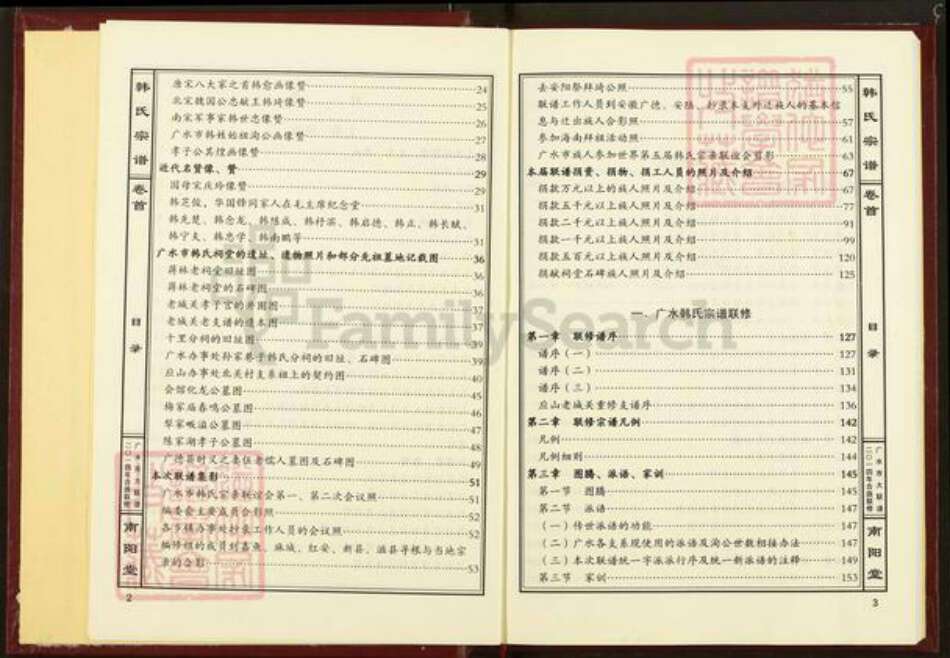 韩氏宗谱
卷首
目录
广水市大联谱
二〇一四年合族联修
南阳堂
唐宋八大家之首韩愈画像赞 24
北宋魏国公忠献王韩琦像赞 25
南宋军事家韩世忠像赞 26
广水市韩姓始祖沟公画像赞 27
孝子公其煌画像赞 28
近代名贤像、赞 29
国母宋庆玲像赞 29
韩芝俊，华国锋同家人在毛主席纪念堂 31
韩先楚、韩念龙、韩练成、韩杼滨、韩启德、韩正、韩长赋、
韩宁夫、韩忠学、韩南鹏等 31
广水市韩氏祠堂的遗址、遗物照片和部分先祖墓地记载图 36
蒋林老祠堂旧址图 36
蒋林老祠堂的石碑图 36
老城关孝子宫的井图图 37
老城关老支谱的遗本图 37
十里分祠的旧址图 39
广水办事处孙家巷子韩氏分祠的旧址、石碑图 39
应山办事处北关村支系祖上的契约图 40
会馆化龙公墓图 45
梅家庙春鸣公墓图 46
邹家畈溢公墓图 47
陈家湖孝子公墓图 48
广德县时义之妻伍老孺人墓图及石碑图 49
本次联谱集影 51
广水市韩氏宗亲联谊会第一、第二次会议照 51
编委会主要成员合影照 52
各乡镇办事处抄录工作人员的会议照 52
编修组的成员到嘉鱼、麻城、红安、新县、滋县寻根与当地宗
亲的合影 53
2
去安阳祭拜琦公照 55
联谱工作人员到安徽广德、安陆、抄录本支外迁族人的基本信
息与迁出族人合影照 57
参加海南拜祖活动照 61
广水市族人参加世界第五届韩氏宗亲联谊会剪影 63
本届联谱捐资、捐物、捐工人员的照片及介绍 67
捐款万元以上的族人照片及介绍 67
捐款五千元以上族人照片及介绍 77
捐款二千元以上族人照片及介绍 91
捐款一千元以上族人照片及介绍 99
捐款五百元以上族人照片及介绍 120
捐献祠堂石碑族人照片及介绍 125
一、广水韩氏宗谱联修
第一章 联修谱序 127
谱序（一） 127
谱序（二） 131
谱序（三） 134
应山老城关重修支谱序 136
第二章 联修宗谱凡例 142
凡例 142
凡例细则 144
第三章 图腾、派语、家训 145
第一节 图腾 145
第二节 派语 147
（一）传世派语的功能 147
（二）广水各支系现使用的派语及沟公世数相接办法 147
（三）本次联谱统一字派派行序及统一新派语的注释 149
第三节 家训 153
韩氏宗谱
卷首
目录
广水市大联谱
二〇一四年合族联修
南阳堂
3
FamilySearch